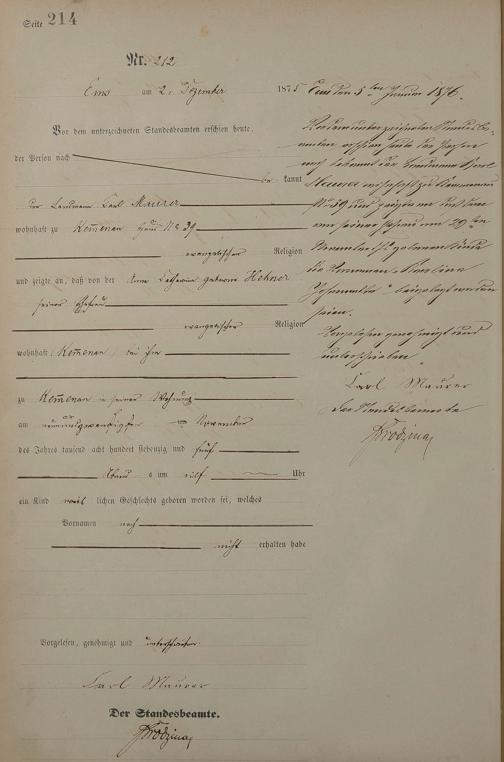 Seite 214
Nr. 212
Ems am 2. Dezember 1875
Vor dem unterzeichneten Standesbeamten erschien heute,
der Person nach
be kannt
der Landmann Carl Maurer
wohnhaft zu Kemmenau Haus No 39
evangelischer Religion
und zeigte an, daß von der Anna Catharina geborene Hehner
seiner Ehefrau
evangelischer Religion
wohnhaft Kemmenau bei ihm
zu Kemmenau in seiner Wohnung
am neunundzwanzigsten November
des Jahres tausend acht hundert siebenzig und fünf
Abends um elf Uhr
ein Kind weib lichen Geschlechts geboren worden sei, welches
Vornamen noch
nicht erhalten habe
Vorgelesen, genehmigt und unterschrieben
Carl Maurer
Der Standesbeamte.
Ems den 5ten Januar 1876.
Vor dem unterzeichneten Standesbe-
amten erschien heute der Person
nach bekannt der Landmann Carl
Maurer wohnhaft zu Kemmenau
No 39 und zeigte an
seiner Ehefrau am 29ten
November geborenen Kinde
die Vornamen Karoline
beigelegt worden
seien.
Vorgelesen genehmigt und
unterschrieben
Carl Maurer
Der Standesbeamte